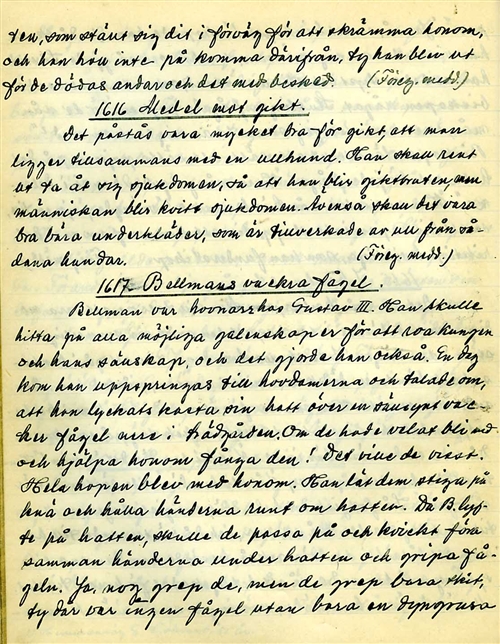 ten, som stäut sig dit i förväg för att skrämma honom,
och han höll inte på komma därifrån, ty han blev ut
för de dödas andar och det med besked. (Föreg. medd.)
1616 Medel mot gikt.
Det påstås vara mycket bra för gikt, att man
ligger tillsammans med en ullhund. Han skall rent
ut ta åt sig sjukdomen, så att han blir giktbruten, men
människan blir kvitt sjukdomen. Även så skall det vara
bra bära underkläder, som är tillverkade av ull från så-
dana hundar. (Föreg. medd.)
1617 Bellmans vackra fågel.
Bellman var hovnarr hos Gustav III. Han skulle
hitta på alla möjliga galenskaper för att roa kungen
och hans sällskap, och det gjorde han också. En dag
kom han uppspringas till hovdamerna och talade om,
att han lyckats kasta sin hatt över en sällsynt vac-
ker fågel nere i trädgården. Om de hade velat bli med
och hjälpa honom fånga den! Det ville de visst.
Hela hopen blev med honom. Han lät dem stiga på
knä och hålla händerna runt om hatten. Då B. lyf-
te på hatten, skulle de passa på och kvickt föra
samman händerna under hatten och gripa få-
geln. Ja, nog grep de, men de grep bara skit,
ty där var ingen fågel utan bara en